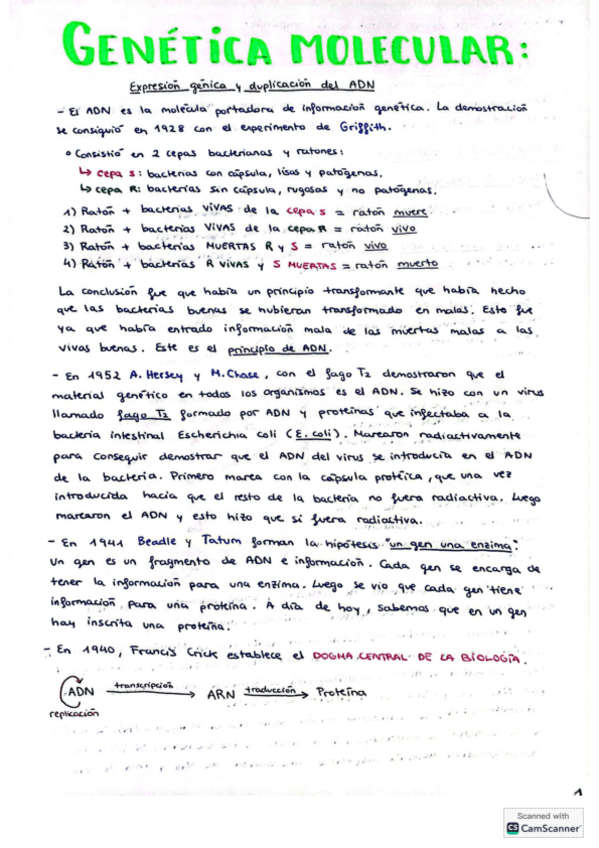 GENÉTICA MOLECULAR:
Expresión génica y duplicación del ADN
- El ADN es la molécula portadora de información genética. La demostración
se consiguió en 1928 con el experimento de Griffith.
° Consistió en 2 cepas bacterianas y ratones:
↳ cepa S: bacterias con cápsula, lisas y patógenas.
↳ cepa R: bacterias sin cápsula, rugosas y no patógenas.
1) Ratón + bacterias VIVAS de la cepa S = ratón muere
2) Ratón + bacterias VIVAS de la cepa R = ratón vivo
3) Ratón + bacterias MUERTAS R y S = ratón vivo
4) Ratón + bacterias R VIVAS y S MUERTAS = ratón muerto
La conclusión fue que había un principio transformante que había hecho
que las bacterias buenas se hubieran transformado en malas. Esto fue
ya que había entrado información mala de las muertas malas a las
vivas buenas. Este es el principio de ADN.
- En 1952 A. Hersey y M. Chase, con el fago T2 demostraron que el
material genético en todos los organismos es el ADN. Se hizo con un virus
llamado fago T2 formado por ADN y proteínas que infectaba a la
bacteria intestinal Escherichia coli (E. coli). Marcaron radiactivamente
para conseguir demostrar que el ADN del virus se introducía en el ADN
de la bacteria. Primero marca con la cápsula protéica, que una vez
introducida hacía que el resto de la bacteria no fuera radiactiva. Luego
marcaron el ADN y esto hizo que si fuera radiactiva.
- En 1941 Beadle y Tatum forman la hipótesis "un gen una enzima".
Un gen es un fragmento de ADN e información. Cada gen se encarga de
tener la información para una enzima. Luego se vio que cada gen tiene
información para una proteína. A día de hoy, sabemos que en un gen
hay inscrita una proteína.
- En 1940, Francis Crick establece el DOGMA CENTRAL DE LA BIOLOGÍA.
ADN transcripción → ARN traducción → Proteína
replicación
1
Scanned with
CS CamScanner